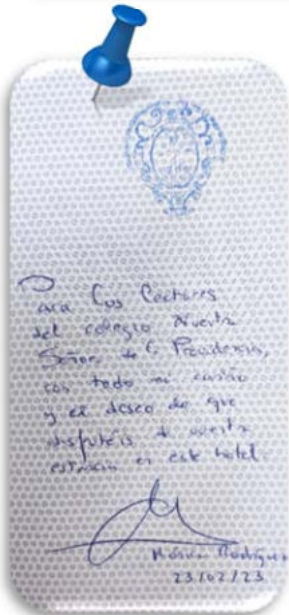 Para los lectores
del colegio Nuestra
Señora de la Providencia,
con todo mi cariño
y el deseo de que
disfrutéis de vuestra
estancia en este hotel.
Mónica Rodríguez
23/02/23